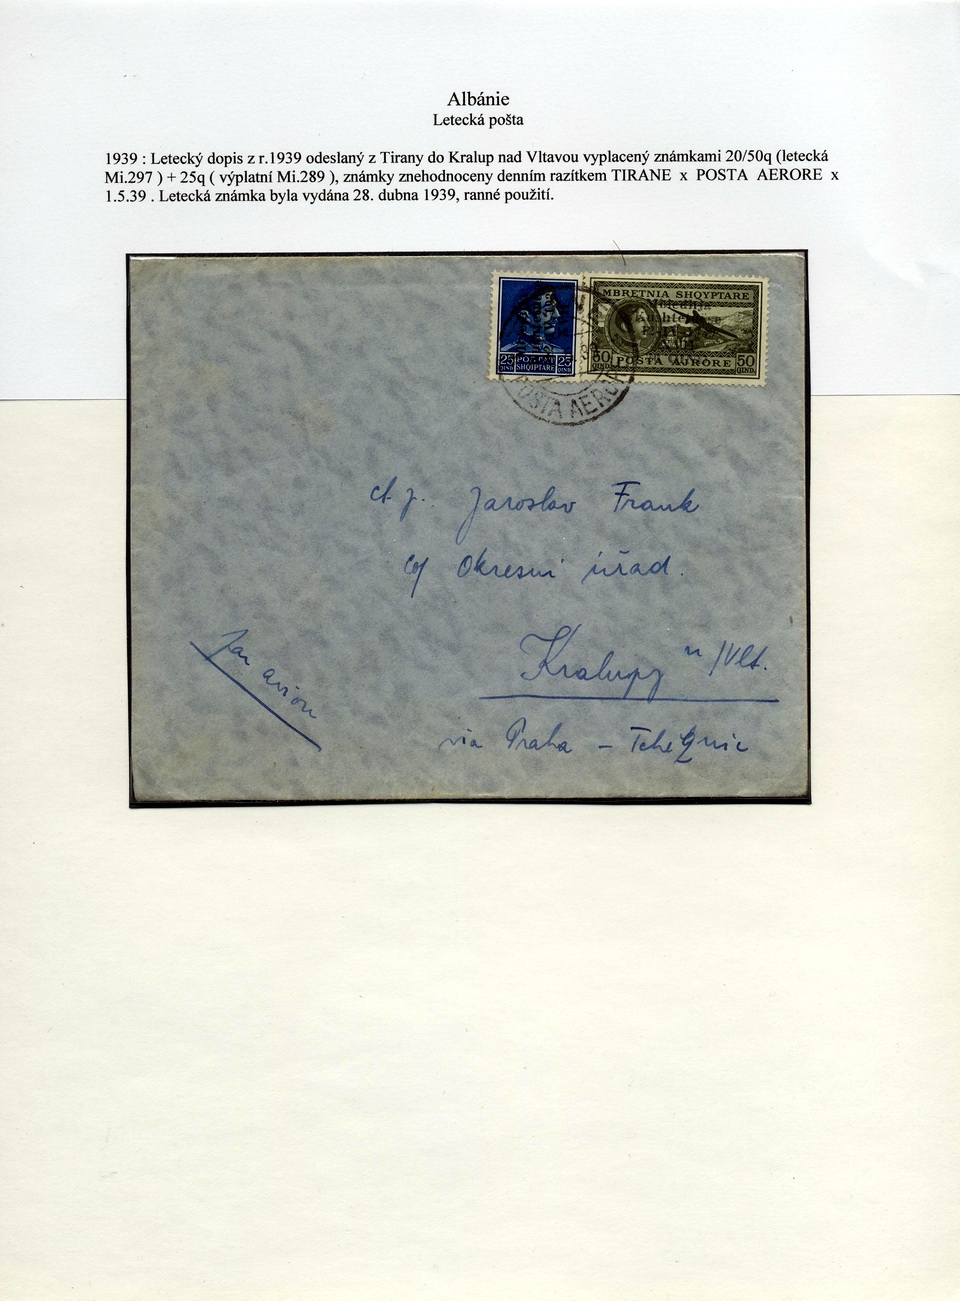 Albánie
Letecká pošta
1939 : Letecký dopis z r.1939 odeslaný z Tirany do Kralup nad Vltavou vyplacený známkami 20/50q (letecká
Mi.297 ) + 25q ( výplatní Mi.289 ), známky znehodnoceny denním razítkem TIRANE x POSTA AERORE x
1.5.39 . Letecká známka byla vydána 28. dubna 1939, ranné použití.
MBRETNIA SHQYPTARE
Mbledhja
Kushtetuese
50 QIND. POSTA AURORE 50 QIND.
25 QIND POSTAT SHQIPTARE 25 QIND
POSTA AEROR
ct. p. Jaroslav Frank
c/ Okresní úřad.
Kralupy n/Vlt.
Par avion
via Praha -